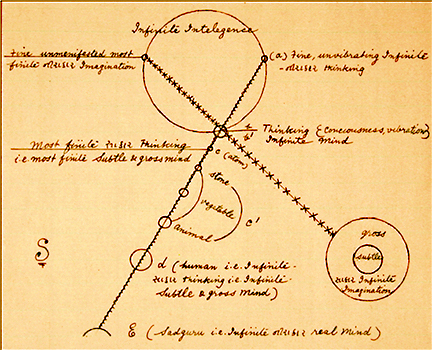 Infinite Intelegence
Fine unmenifested most
finite Imagination
(a) Fine, unvibrating Infinite
- thinking
b
b'
Thinking (Conciousness, vibration)
Infinite Mind
Most finite Thinking
i.e. most finite Subtle & gross mind
c (atom)
stone
vegetable
animal
c'
gross
subtle
Infinite
Imagination
d (human i.e. Infinite-
Thinking i.e. Infinite
Subtle & gross Mind)
E (Sadguru i.e. Infinite real Mind)